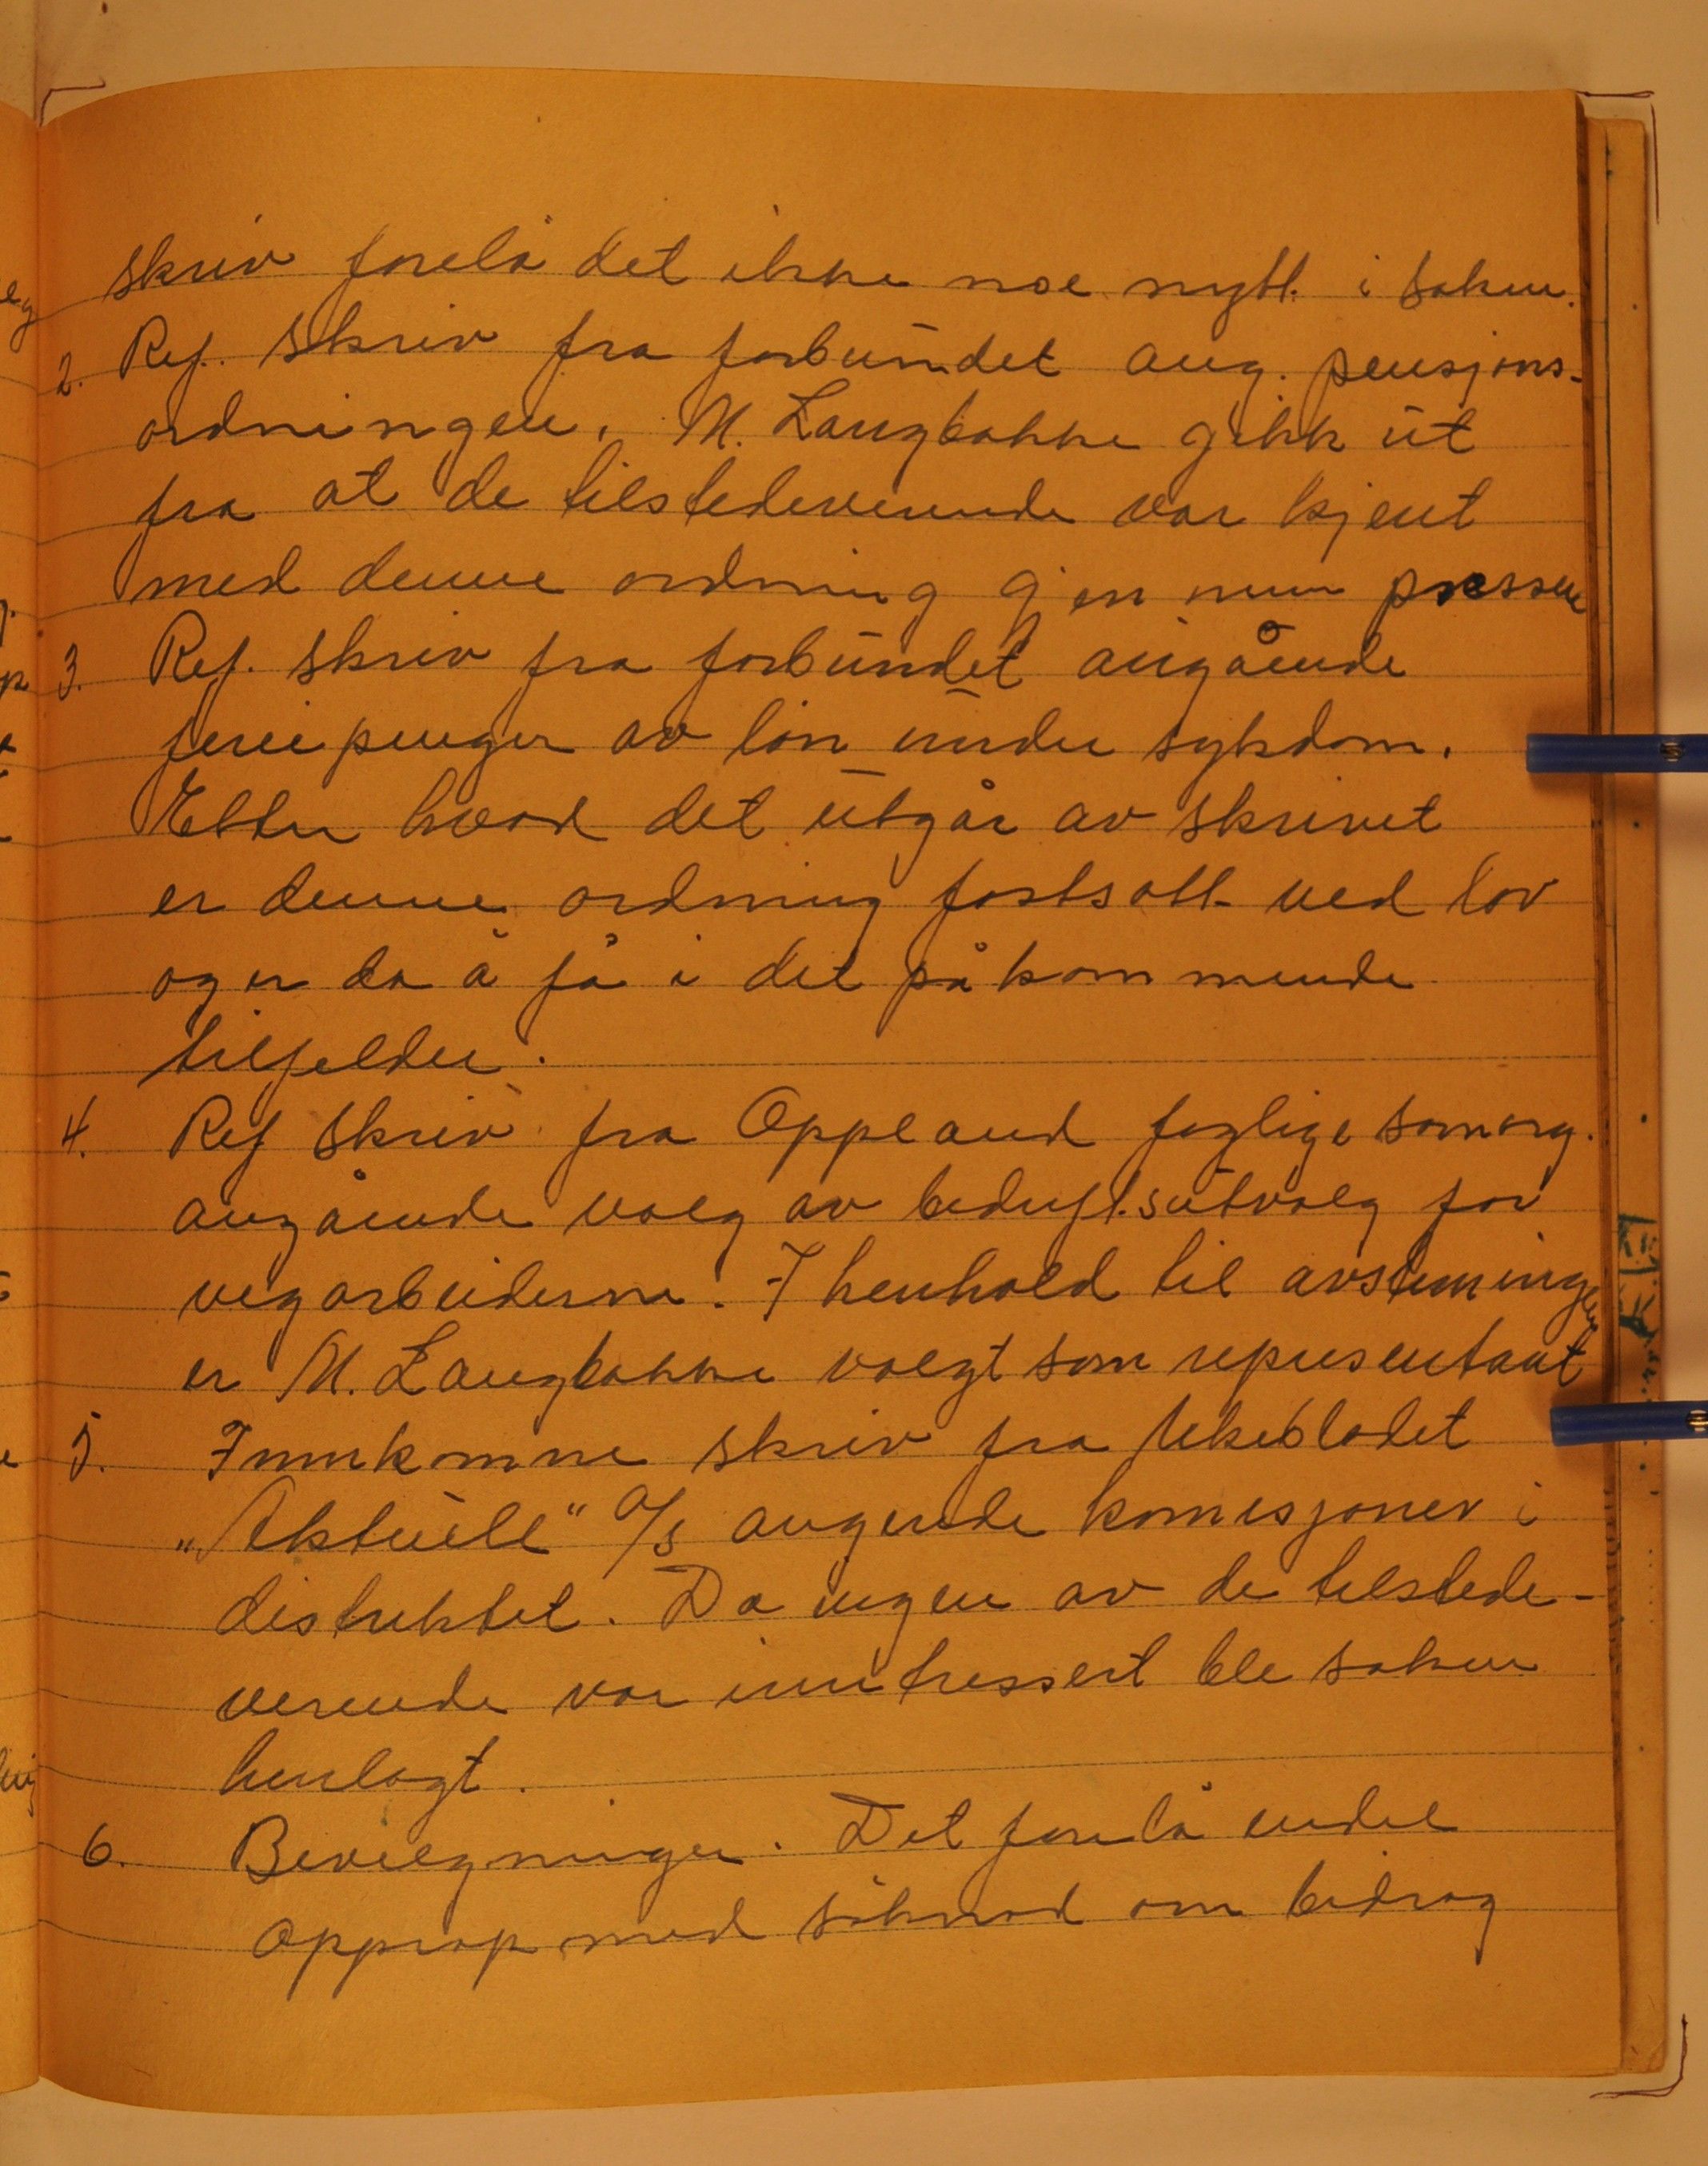 skriv forelå det ikke noe nytt i saken.
2. Ref. skriv fra forbundet ang. pensjons-
ordningen. M. Langbakke gikk ut
fra at de tilstedeverende var kjent
med denne ordning gjennem pressen
3. Ref. skriv fra forbundet angående
feriepenger av lön under sykdom.
Etter hvad det utgår av skrivet
er denne ordning fastsatt ved lov
og er da å få i det påkommende
tilfelder.
4. Ref skriv fra Oppland faglige samorg.
angående valg av bedriftsutvalg for
vegarbeiderne. I henhold til avstemingen
er M. Langbakke valgt som representant
5. Innkomne skriv fra Ukebladet
„Aktuell“ A/S angende komisjoner i
distriktet. Da ingen av de tilstede-
verende var inntressert ble saken
henlagt.
6. Bevilgninger. Det forelå endel
opprop med söknad om bidrag